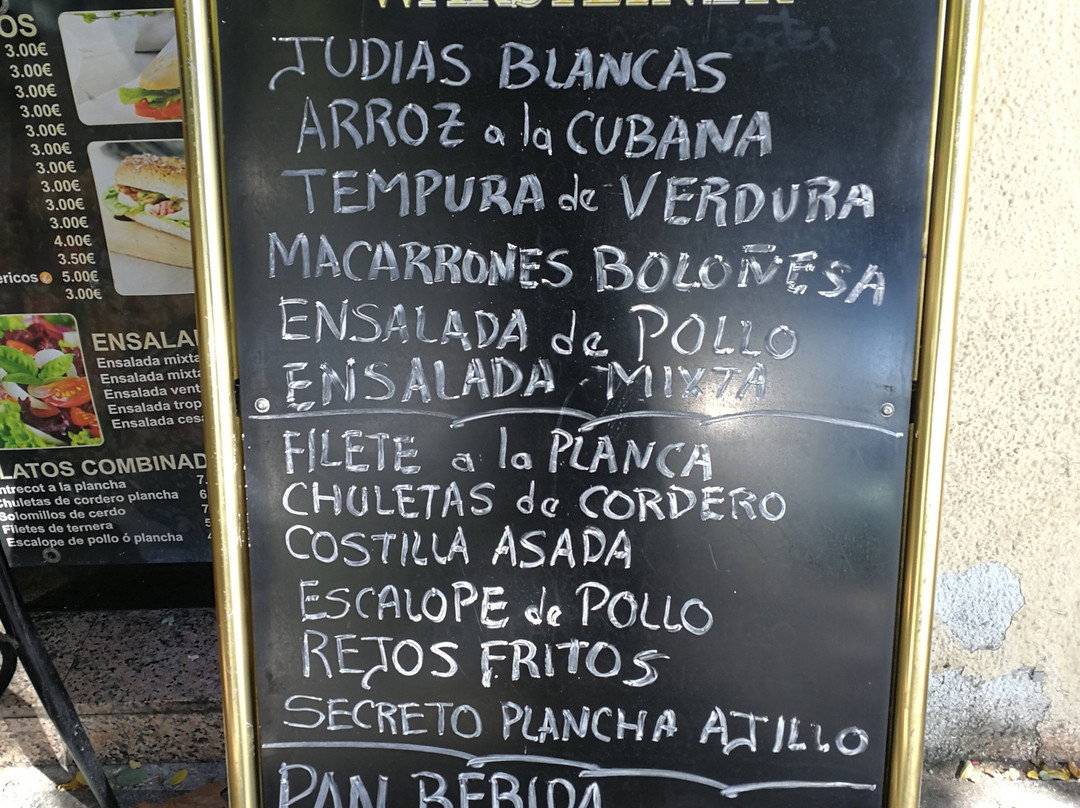 WARSTEINER
JUDIAS BLANCAS
ARROZ a la CUBANA
TEMPURA de VERDURA
MACARRONES BOLOÑESA
ENSALADA de POLLO
ENSALADA MIXTA
FILETE a la PLANCA
CHULETAS de CORDERO
COSTILLA ASADA
ESCALOPE de POLLO
REJOS FRITOS
SECRETO PLANCHA AJILLO
PAN BEBIDA
OS
3.00€
3.00€
3.00€
3.00€
3.00€
3.00€
3.00€
3.00€
3.00€
3.00€
4.00€
3.50€
ericos 5.00€
3.00€
ENSALA
Ensalada mixta
Ensalada mixta
Ensalada vent
Ensalada trop
Ensalada cesa
LATOS COMBINAD
ntrecot a la plancha 7.
Chuletas de cordero plancha 6
Solomillos de cerdo 7
Filetes de ternera 5
Escalope de pollo ó plancha